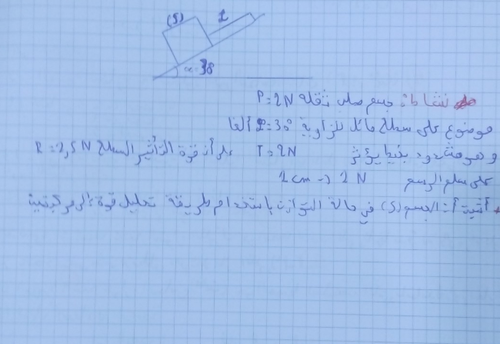 (S) 2
α=30
نشاط: جسم صلب ثقله P=2N
موضوع على سطح مائل للزاوية α=30° ألفا
و هو مشدود بخيط يؤثر T=2N على أن قوة التأثير السطح R=2,5N
على سلم الرسم 1cm → 1N
أثبت أن الجسم (S) في حالة التوازن باستخدام طريقة تحليل قوة إلى مركبتين